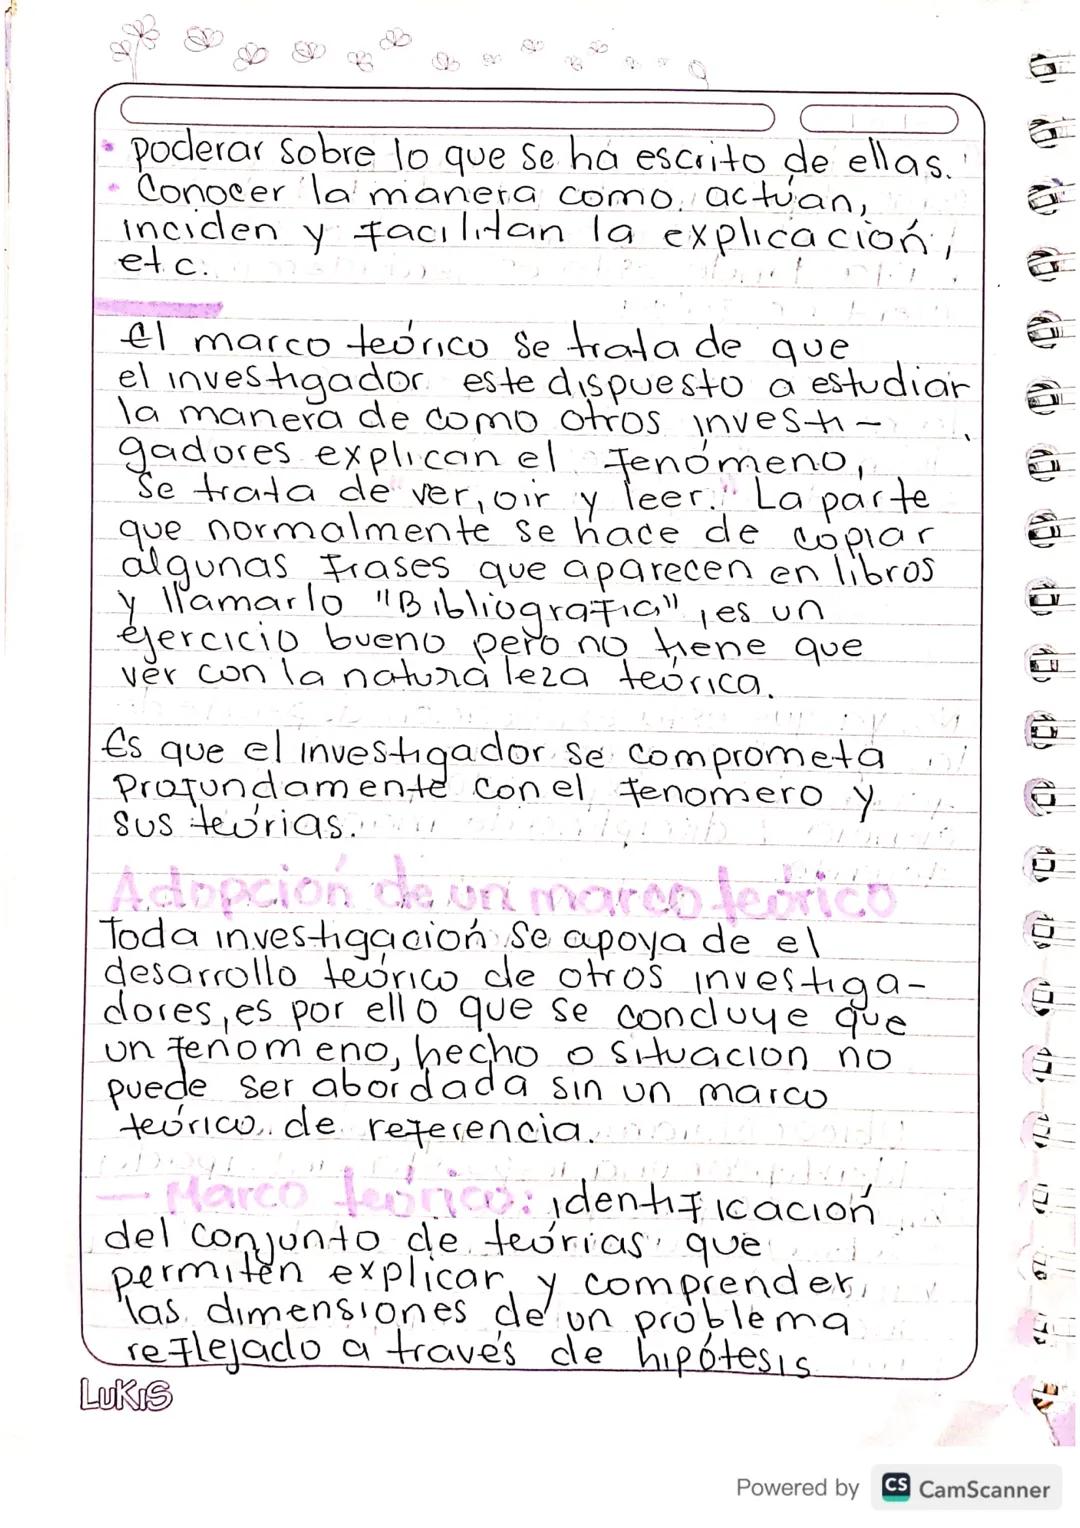 • poderar sobre lo que se ha escrito de ellas.
• Conocer la manera como actúan,
inciden y facilitan la explicación,
etc.
El marco teórico se trata de que
el investigador este dispuesto a estudiar
la manera de como otros investi-
gadores explican el fenómeno,
se trata de "ver, oir y leer." La parte
que normalmente se hace de copiar
algunas frases que aparecen en libros
y llamarlo "Bibliografia", es un
ejercicio bueno pero no tiene que
ver con la natura leza teórica.
Es que el investigador se comprometa
Profundamente con el fenomero y
sus teórias.
Adopción de un marco teórico
Toda investigación se apoya de el
desarrollo teórico de otros investiga-
dores, es por ello que se concluye que
un fenomeno, hecho o situacion no
puede ser abordada sin un marco
teórico de referencia.
— Marco teórico: identificación
del conjunto de teórias que
permiten explicar y comprender
las dimensiones de un problema
reflejado a través de hipótesis
LUKIS
Powered by CS CamScanner